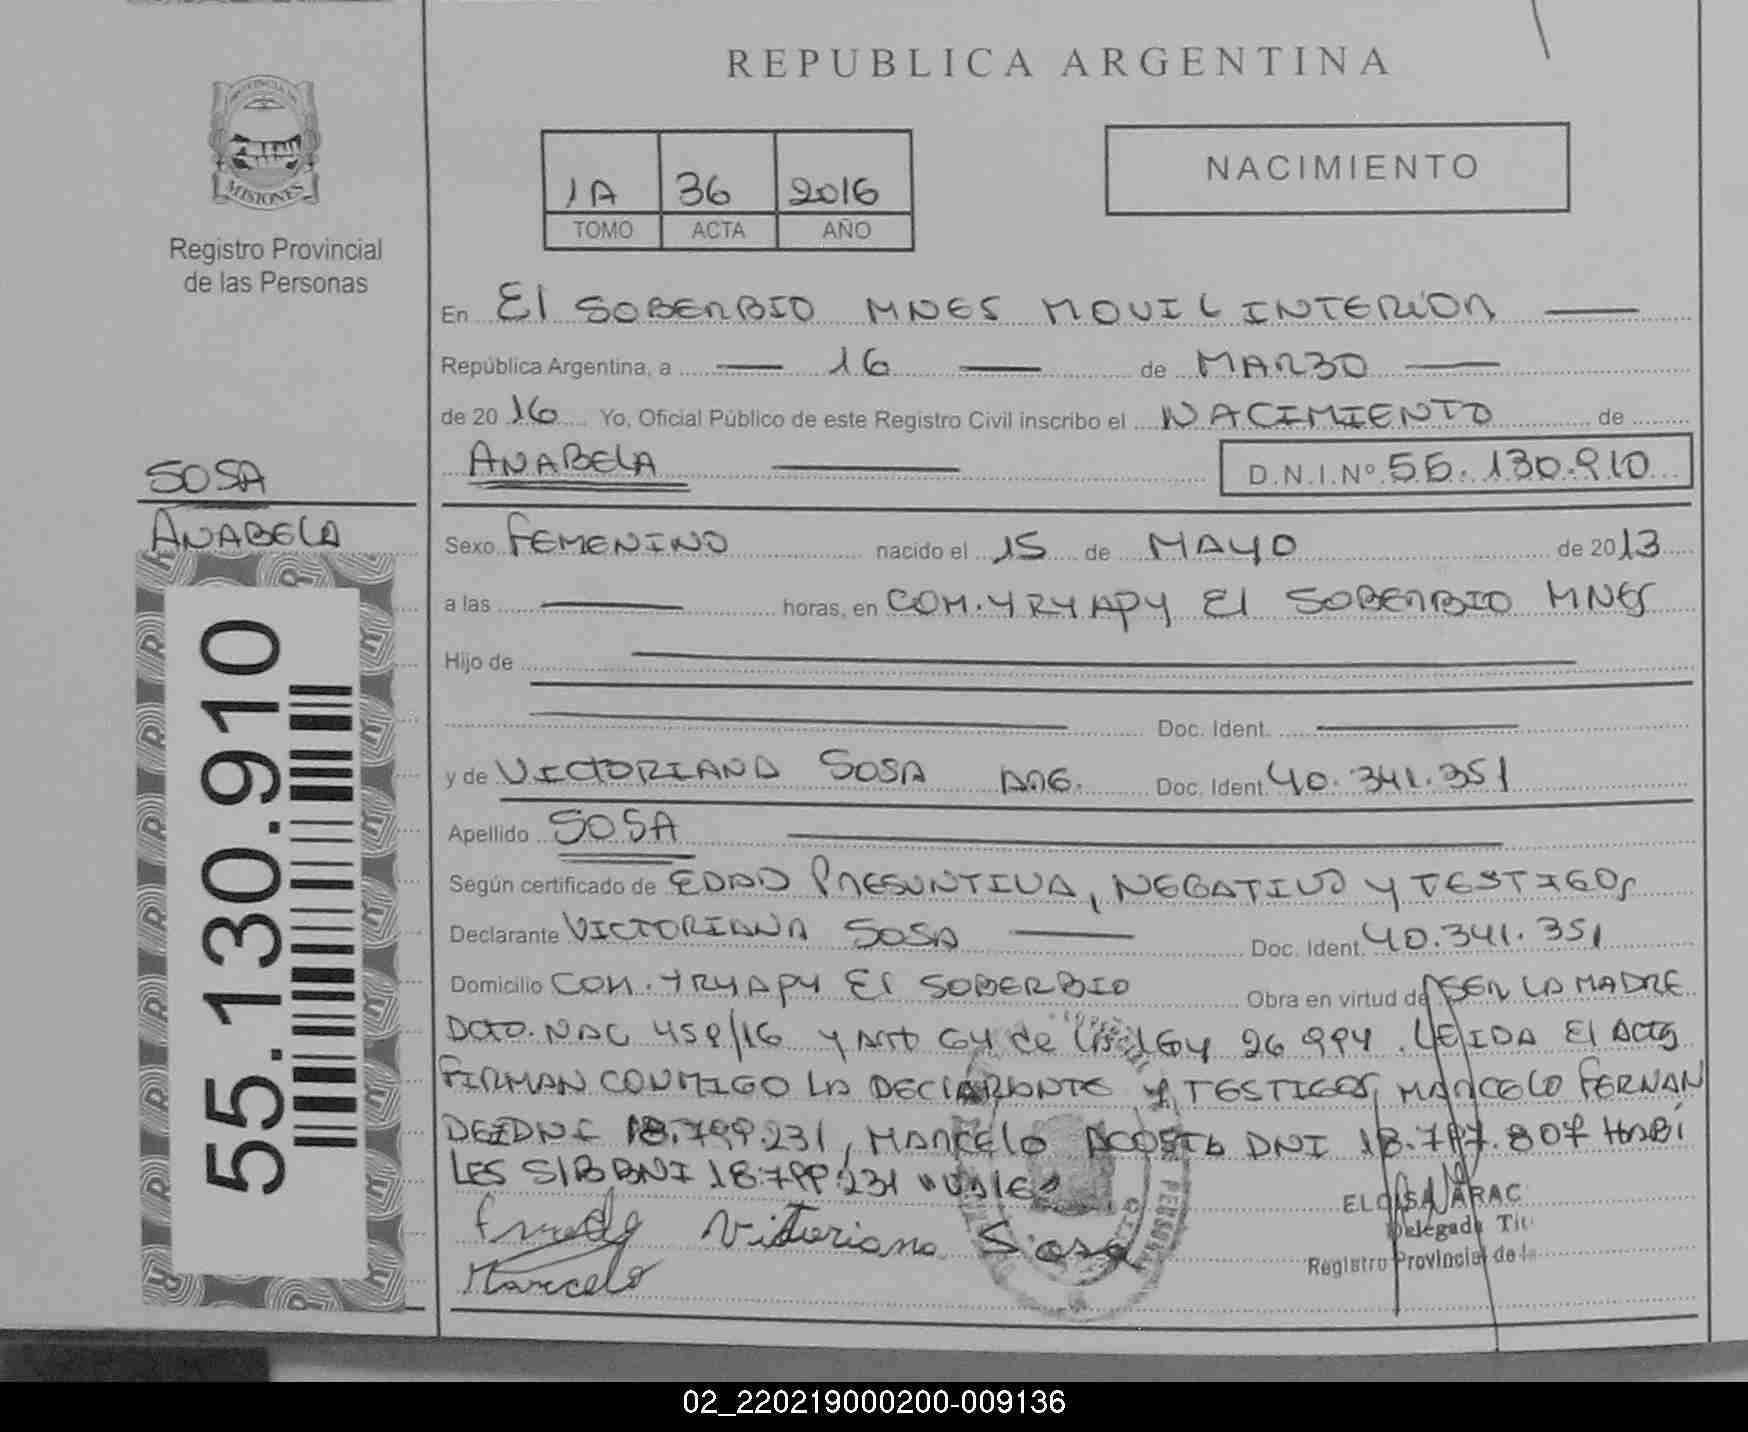 REPUBLICA ARGENTINA
MISIONES
Registro Provincial
de las Personas
1A 36 2016
TOMO ACTA AÑO
NACIMIENTO
En El SOBERBIO MNES MOVIL INTERIOR
República Argentina, a 16 de MARZO
de 2016 Yo, Oficial Público de este Registro Civil inscribo el NACIMIENTO de
ANABELA D.N.I.Nº 55.130.910
SOSA
ANABELA
55.130.910
Sexo FEMENINO nacido el 15 de MAYO de 2013
a las horas, en COM. YRYAPY El SOBERBIO MNES
Hijo de
Doc. Ident.
y de VICTORIANA SOSA ARG. Doc. Ident. 40.341.351
Apellido SOSA
Según certificado de EDAD PRESUNTIVA, NEGATIVO Y TESTIGOS
Declarante VICTORIANA SOSA Doc. Ident. 40.341.351
Domicilio COM. YRYAPY El SOBERBIO Obra en virtud de SER LA MADRE
DCTO. NAC 459/16 y Art 64 de la Ley 26994. LEIDA El Acta
FIRMAN CONMIGO LA DECLARANTE Y TESTIGOS, MARCELO FERNAN
DEZ DNI 18.799.231, MARCELO ACOSTA DNI 18.797.807 HABI
LES S/B DNI 18.799.231 "VALE"
Victoriana Sosa
Marcelo
ELOISA ARAC
Delegada Tit
Registro Provincial de la
02_220219000200-009136